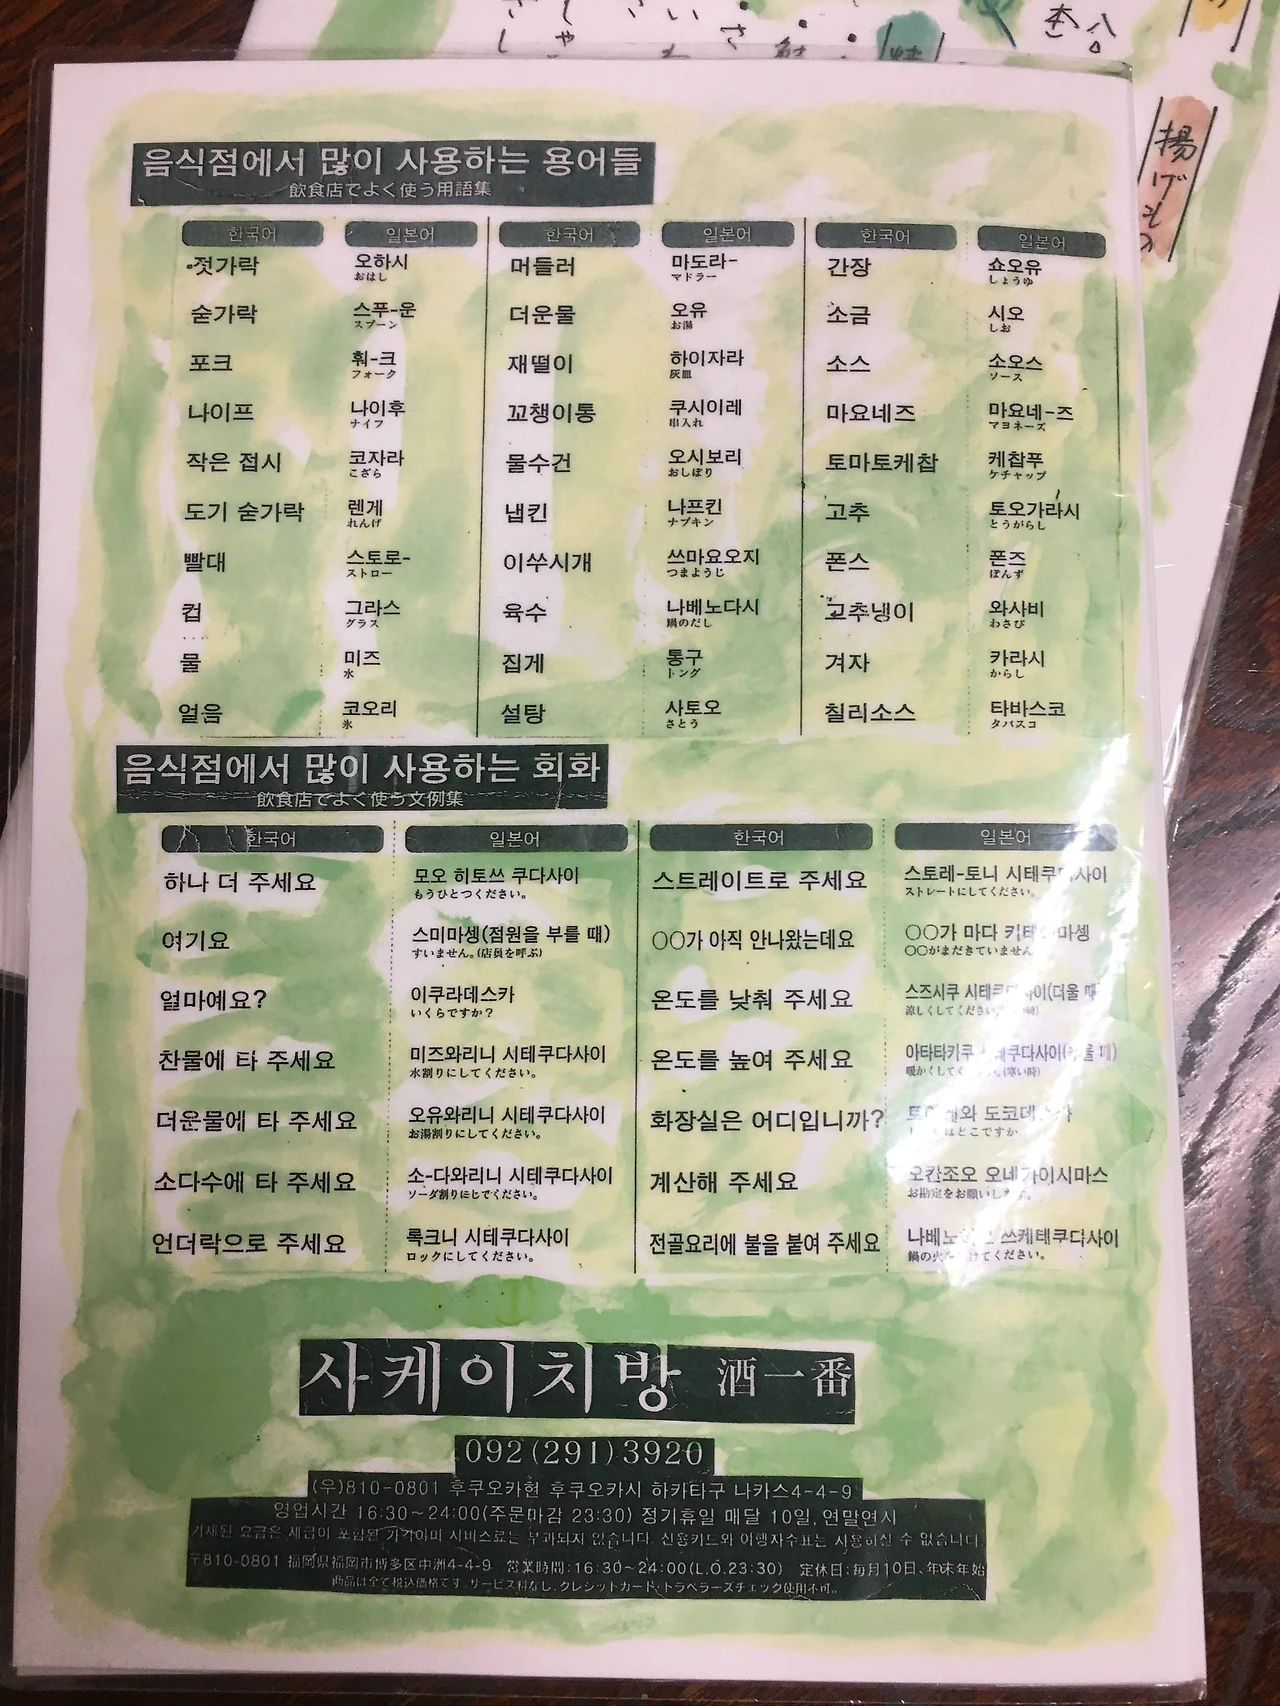 揚げもの
음식점에서 많이 사용하는 용어들
飲食店でよく使う用語集
한국어 일본어 한국어 일본어 한국어 일본어
젓가락 오하시 머들러 마도라- 간장 쇼오유
おはし マドラー しょうゆ
숟가락 스푸-운 더운물 오유 소금 시오
スプーン お湯 しお
포크 훠-크 재떨이 하이자라 소스 소오스
フォーク 灰皿 ソース
나이프 나이후 꼬챙이통 쿠시이레 마요네즈 마요네-즈
ナイフ 串入れ マヨネーズ
작은 접시 코자라 물수건 오시보리 토마토케찹 케찹푸
こざら おしぼり ケチャップ
도기 숟가락 렌게 냅킨 나프킨 고추 토오가라시
れんげ ナプキン とうがらし
빨대 스토로- 이쑤시개 쓰마요오지 폰스 폰즈
ストロー つまようじ ぽんず
컵 그라스 육수 나베노다시 고추냉이 와사비
グラス 鍋のだし わさび
물 미즈 집게 통구 겨자 카라시
水 トング からし
얼음 코오리 설탕 사토오 칠리소스 타바스코
氷 さとう タバスコ
음식점에서 많이 사용하는 회화
飲食店でよく使う文例集
한국어 일본어 한국어 일본어
하나 더 주세요 모오 히토쓰 쿠다사이 스트레이트로 주세요 스토레-토니 시테쿠다사이
もうひとつください。 ストレートにしてください。
여기요 스미마셍(점원을 부를 때) ○○가 아직 안나왔는데요 ○○가 마다 키테 마셍
すいません。(店員を呼ぶ) ○○がまだきていません
얼마예요? 이쿠라데스카 온도를 낮춰 주세요 스즈시쿠
いくらですか? 涼しくしてください
찬물에 타 주세요 미즈와리니 시테쿠다사이 온도를 높여 주세요 아타타카쿠
水割りにしてください。 暖かくして (寒い時)
더운물에 타 주세요 오유와리니 시테쿠다사이 화장실은 어디입니까?
お湯割りにしてください。 はどこですか
소다수에 타 주세요 소-다와리니 시테쿠다사이 계산해 주세요 오칸조오 오네가이시마스
ソーダ割りにしてください。 お勘定をお願いします。
언더락으로 주세요 록크니 시테쿠다사이 전골요리에 불을 붙여 주세요 쓰케테쿠다사이
ロックにしてください。 鍋の火 けてください。
사케이치방 酒一番
092(291)3920
(우)810-0801 후쿠오카현 후쿠오카시 하카타구 나카스4-4-9
영업시간 16:30~24:00(주문마감 23:30) 정기휴일 매달 10일, 연말연시
기재된 요금은 세금이 포함된 가격이며 서비스료는 부과되지 않습니다. 신용카드와 여행자수표는 사용하실 수 없습니다.
〒810-0801 福岡県福岡市博多区中洲4-4-9 営業時間:16:30~24:00(L.O.23:30) 定休日:毎月10日、年末年始
商品は全て税込価格です。サービス料なし。クレジットカード・トラベラーズチェック使用不可。